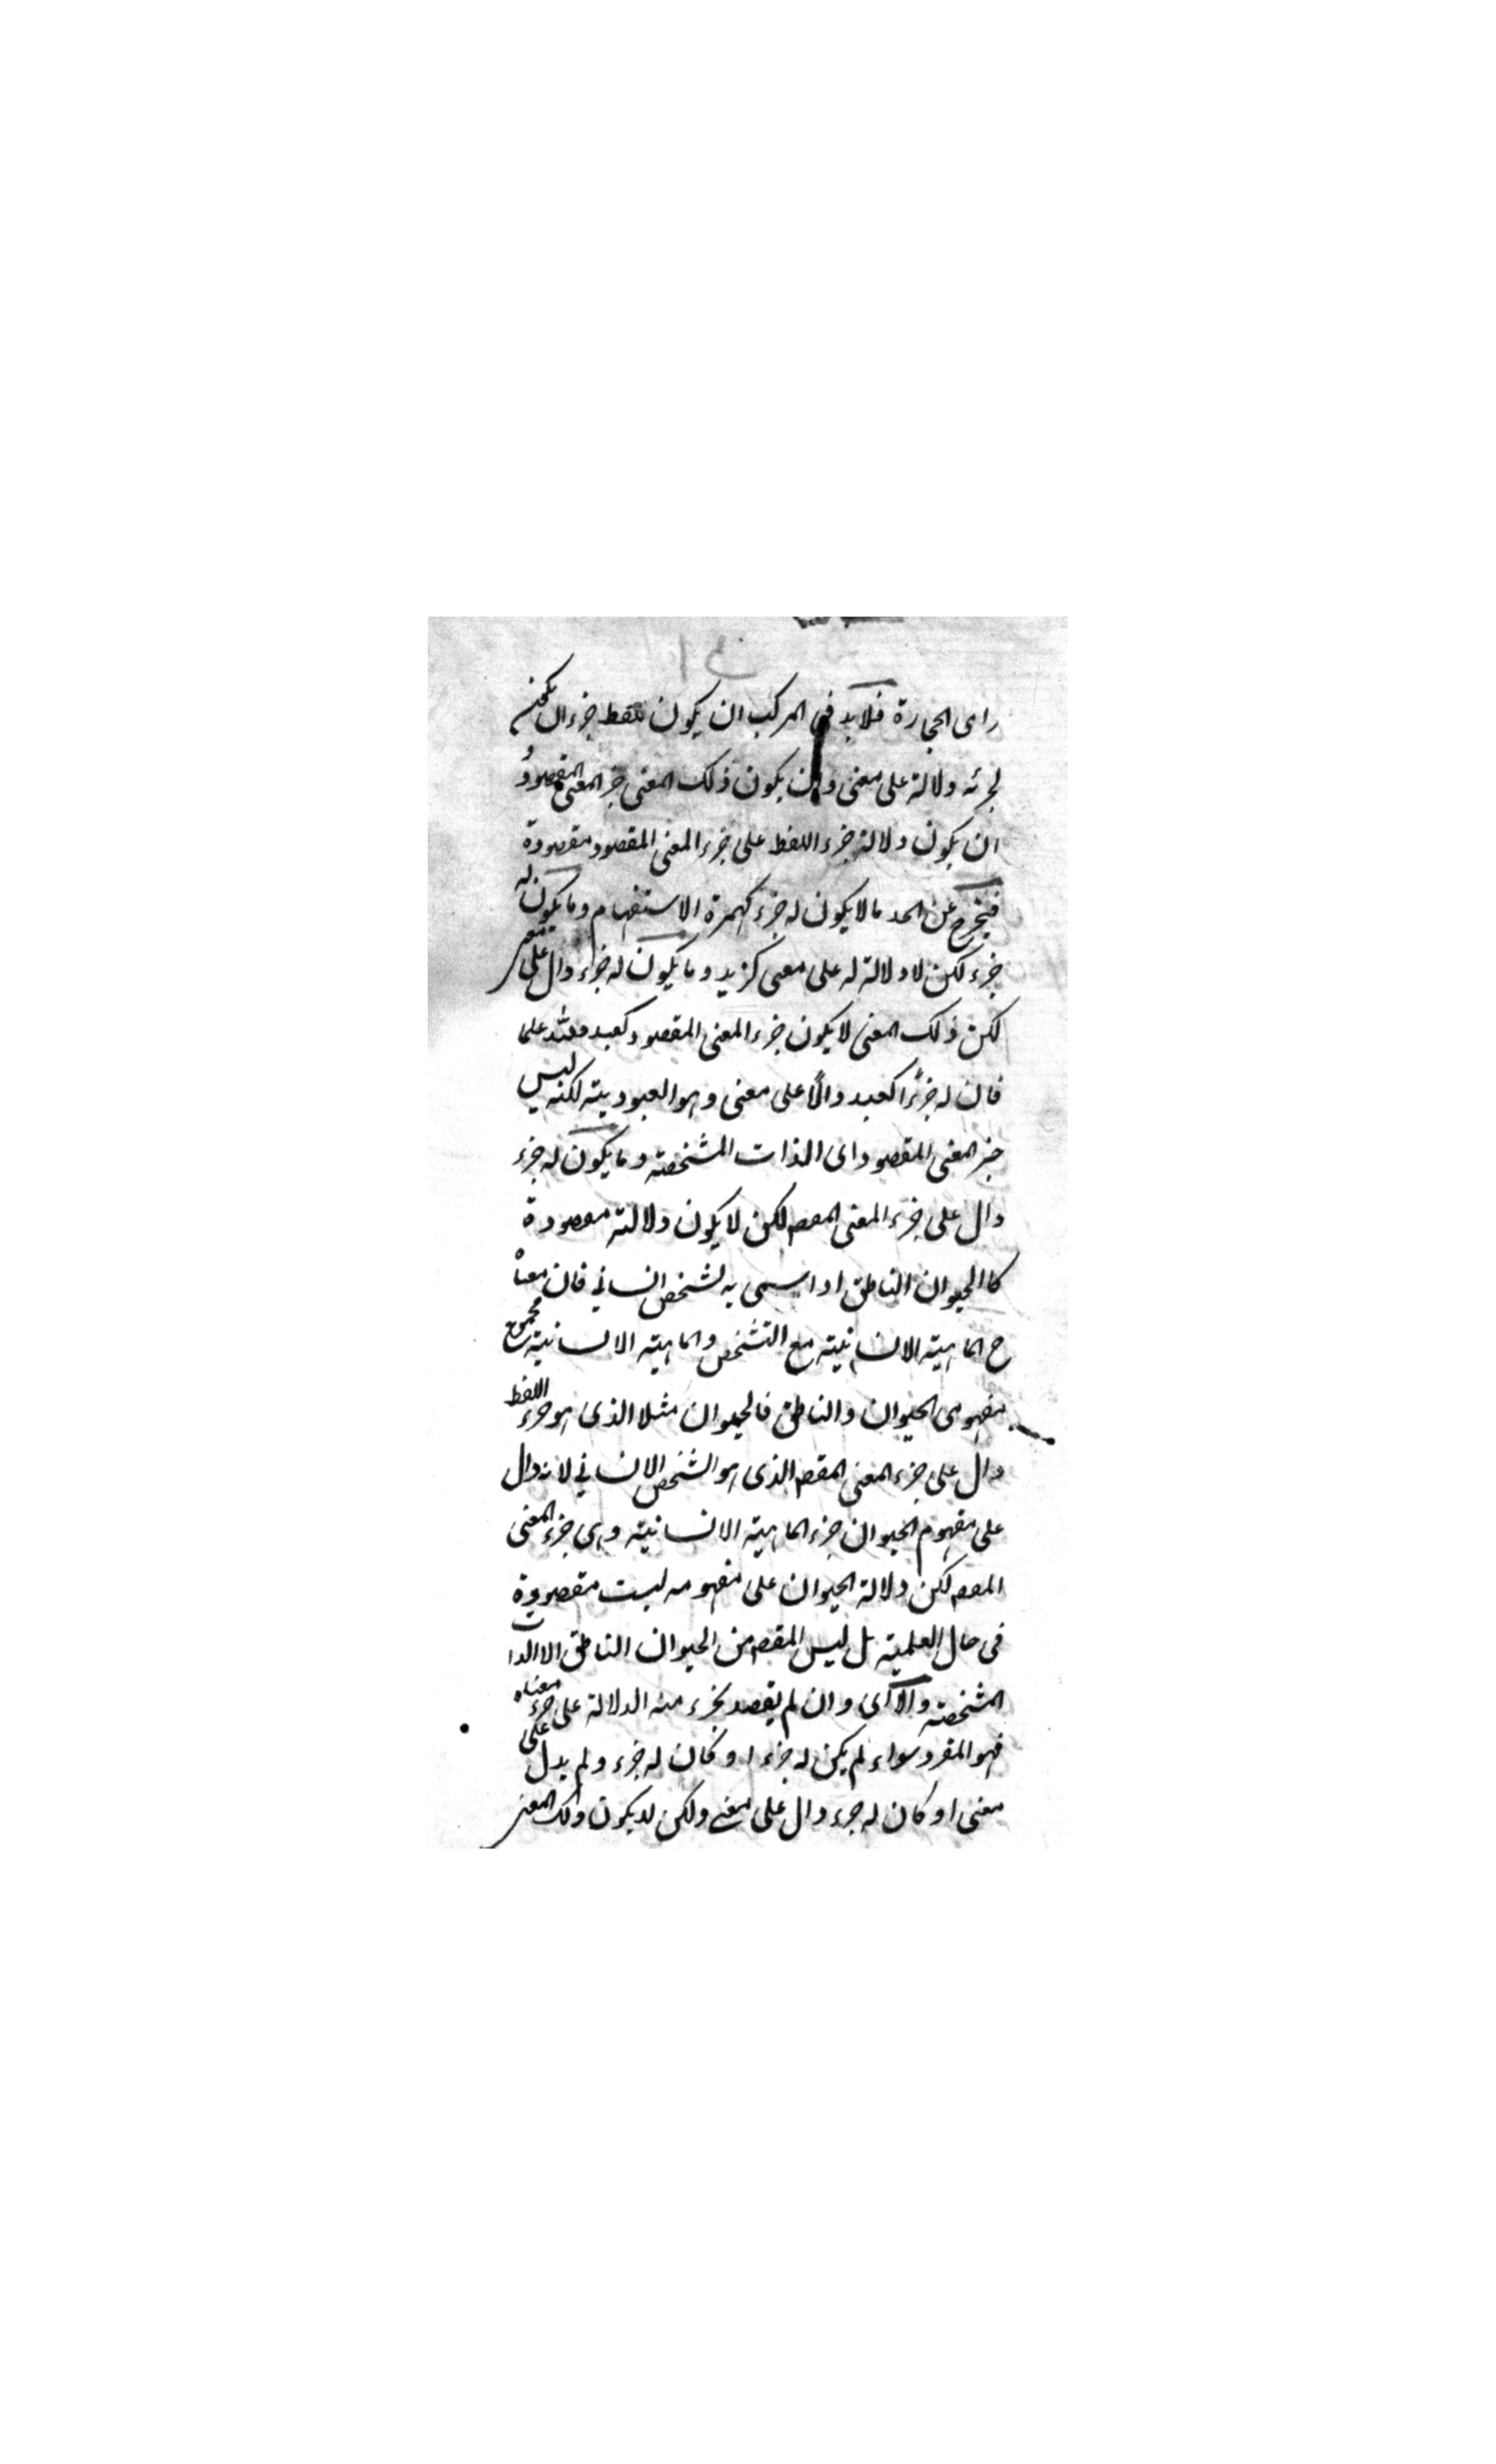 رامى الحجارة فلابد فى المركب ان يكون للفظ جزء ان يكون
لجزئه دلالة على معنى وان يكون ذلك المعنى جزء المعنى المقصود و
ان يكون دلالة جزء اللفظ على جزء المعنى المقصود مقصودة
فيخرج عن الحد ما لا يكون له جزء كهمزة الاستفهام وما يكون له
جزء لكن لا دلالة له على معنى كزيد وما يكون له جزء دال على معنى
لكن ذلك المعنى لا يكون جزء المعنى المقصود كعبد الله علما
فان له جزءًا كعبد دالًا على معنى وهو العبودية لكنه ليس
جزء المعنى المقصود اى الذات المشخصة وما يكون له جزء
دال على جزء المعنى المقصـ لكن لا يكون دلالته مقصودة
كالحيوان الناطق اذا سمى به شخص انسانى فان معناه
ح الماهية الانسانية مع التشخص والماهية الانسانية مجموع
مفهومى الحيوان والناطق فالحيوان مثلا الذى هو جزء اللفظ
دال على جزء المعنى المقصـ الذى هو الشخص الانسانى لانه دال
على مفهوم الحيوان جزء الماهية الانسانية وهى جزء المعنى
المقصـ لكن دلالة الحيوان على مفهومه ليست مقصودة
فى حال العلمية بل ليس المقصـ من الحيوان الناطق الا الذات
المشخصة والا اى وان لم يقصد بجزء منه الدلالة على جزء معناه
فهو المفرد سواء لم يكن له جزء او كان له جزء ولم يدل على
معنى او كان له جزء دال على معنى ولكن لا يكون ذلك المعنى